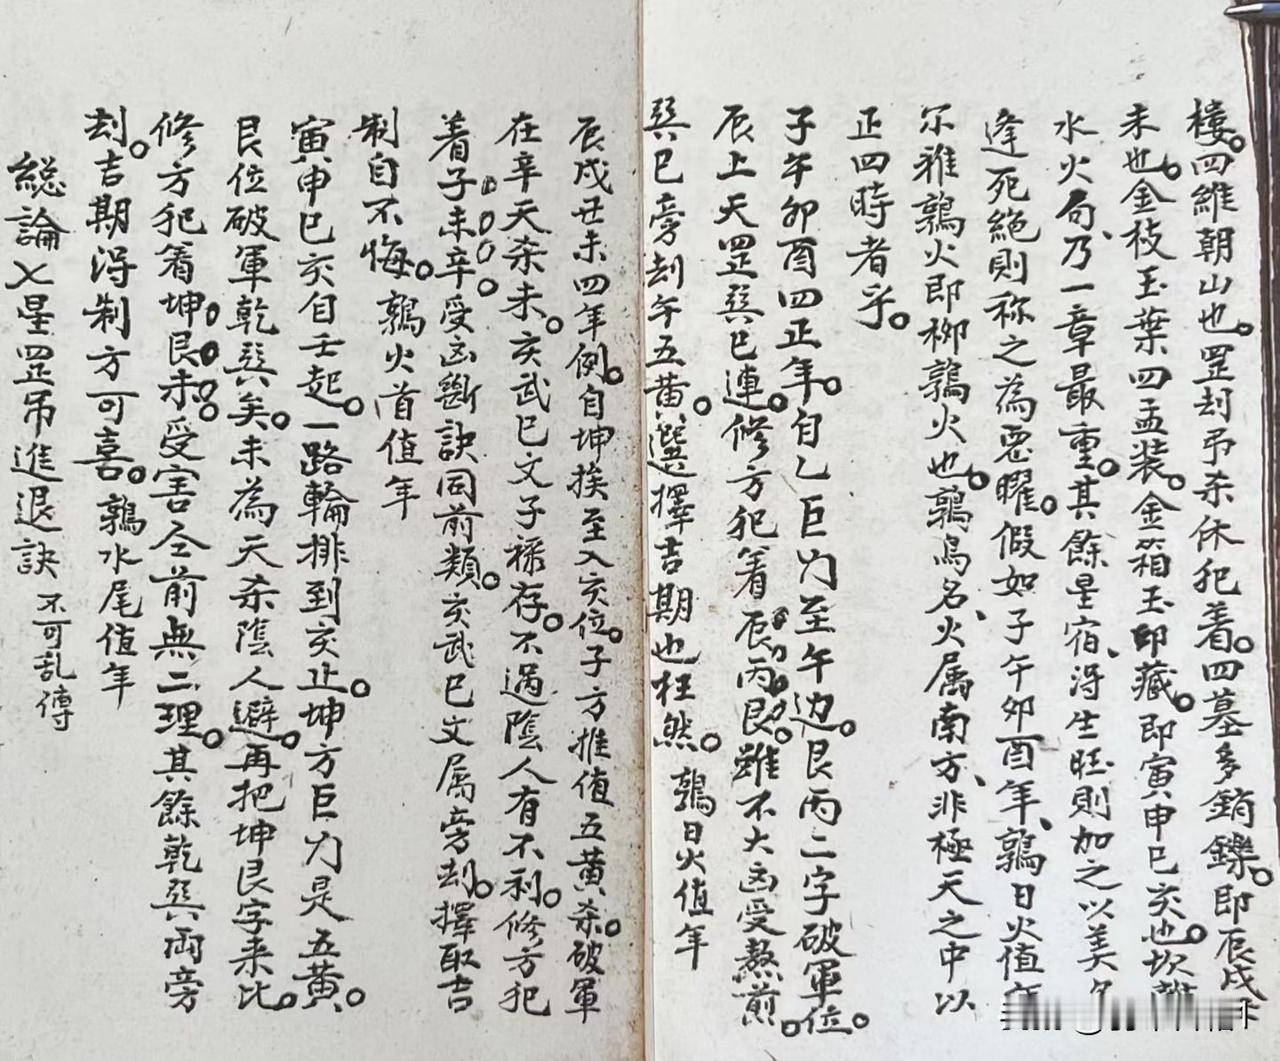 樓。四維朝山也。罡刼吊杀休犯着。四墓多銷鑠。即辰戌丑
未也。金枝玉葉四孟装。金箱玉印藏。即寅申巳亥也。坎離
水火局、乃一章最重。其餘星宿、得生旺則加之以美名
逢死絕則称之為惡曜。假如子午卯酉年、鶉日火值年
尔雅鶉火即柳鶉火也。鶉鳥名、火属南方、非極天之中以
正四時者乎。
子午卯酉四正年。自乙巨门至午边。艮丙二字破軍位。
辰上天罡巽巳連。修方犯着辰丙艮。雖不大凶受熬煎。
巽巳旁刼午五黄。選擇吉期也枉然。 鶉日火值年
辰戌丑未四年例。自坤挨至入亥位。子方推值五黄杀。破軍
在辛天杀未。亥武巳文子祿存。不過陰人有不利。修方犯
着子未辛受凶斷訣同前類。亥武巳文属旁刼。擇取吉
制自不悔。鶉火首值年
寅申巳亥自壬起。一路輪排到亥止。坤方巨门是五黄。
艮位破軍乾巽矣。未為天杀陰人避。再把坤艮字来比。
修方犯着坤艮未。受害仝前無二理。其餘乾巽両旁
刼。吉期得制方可喜。鶉水尾值年
総論七星罡吊進退訣 不可乱傳